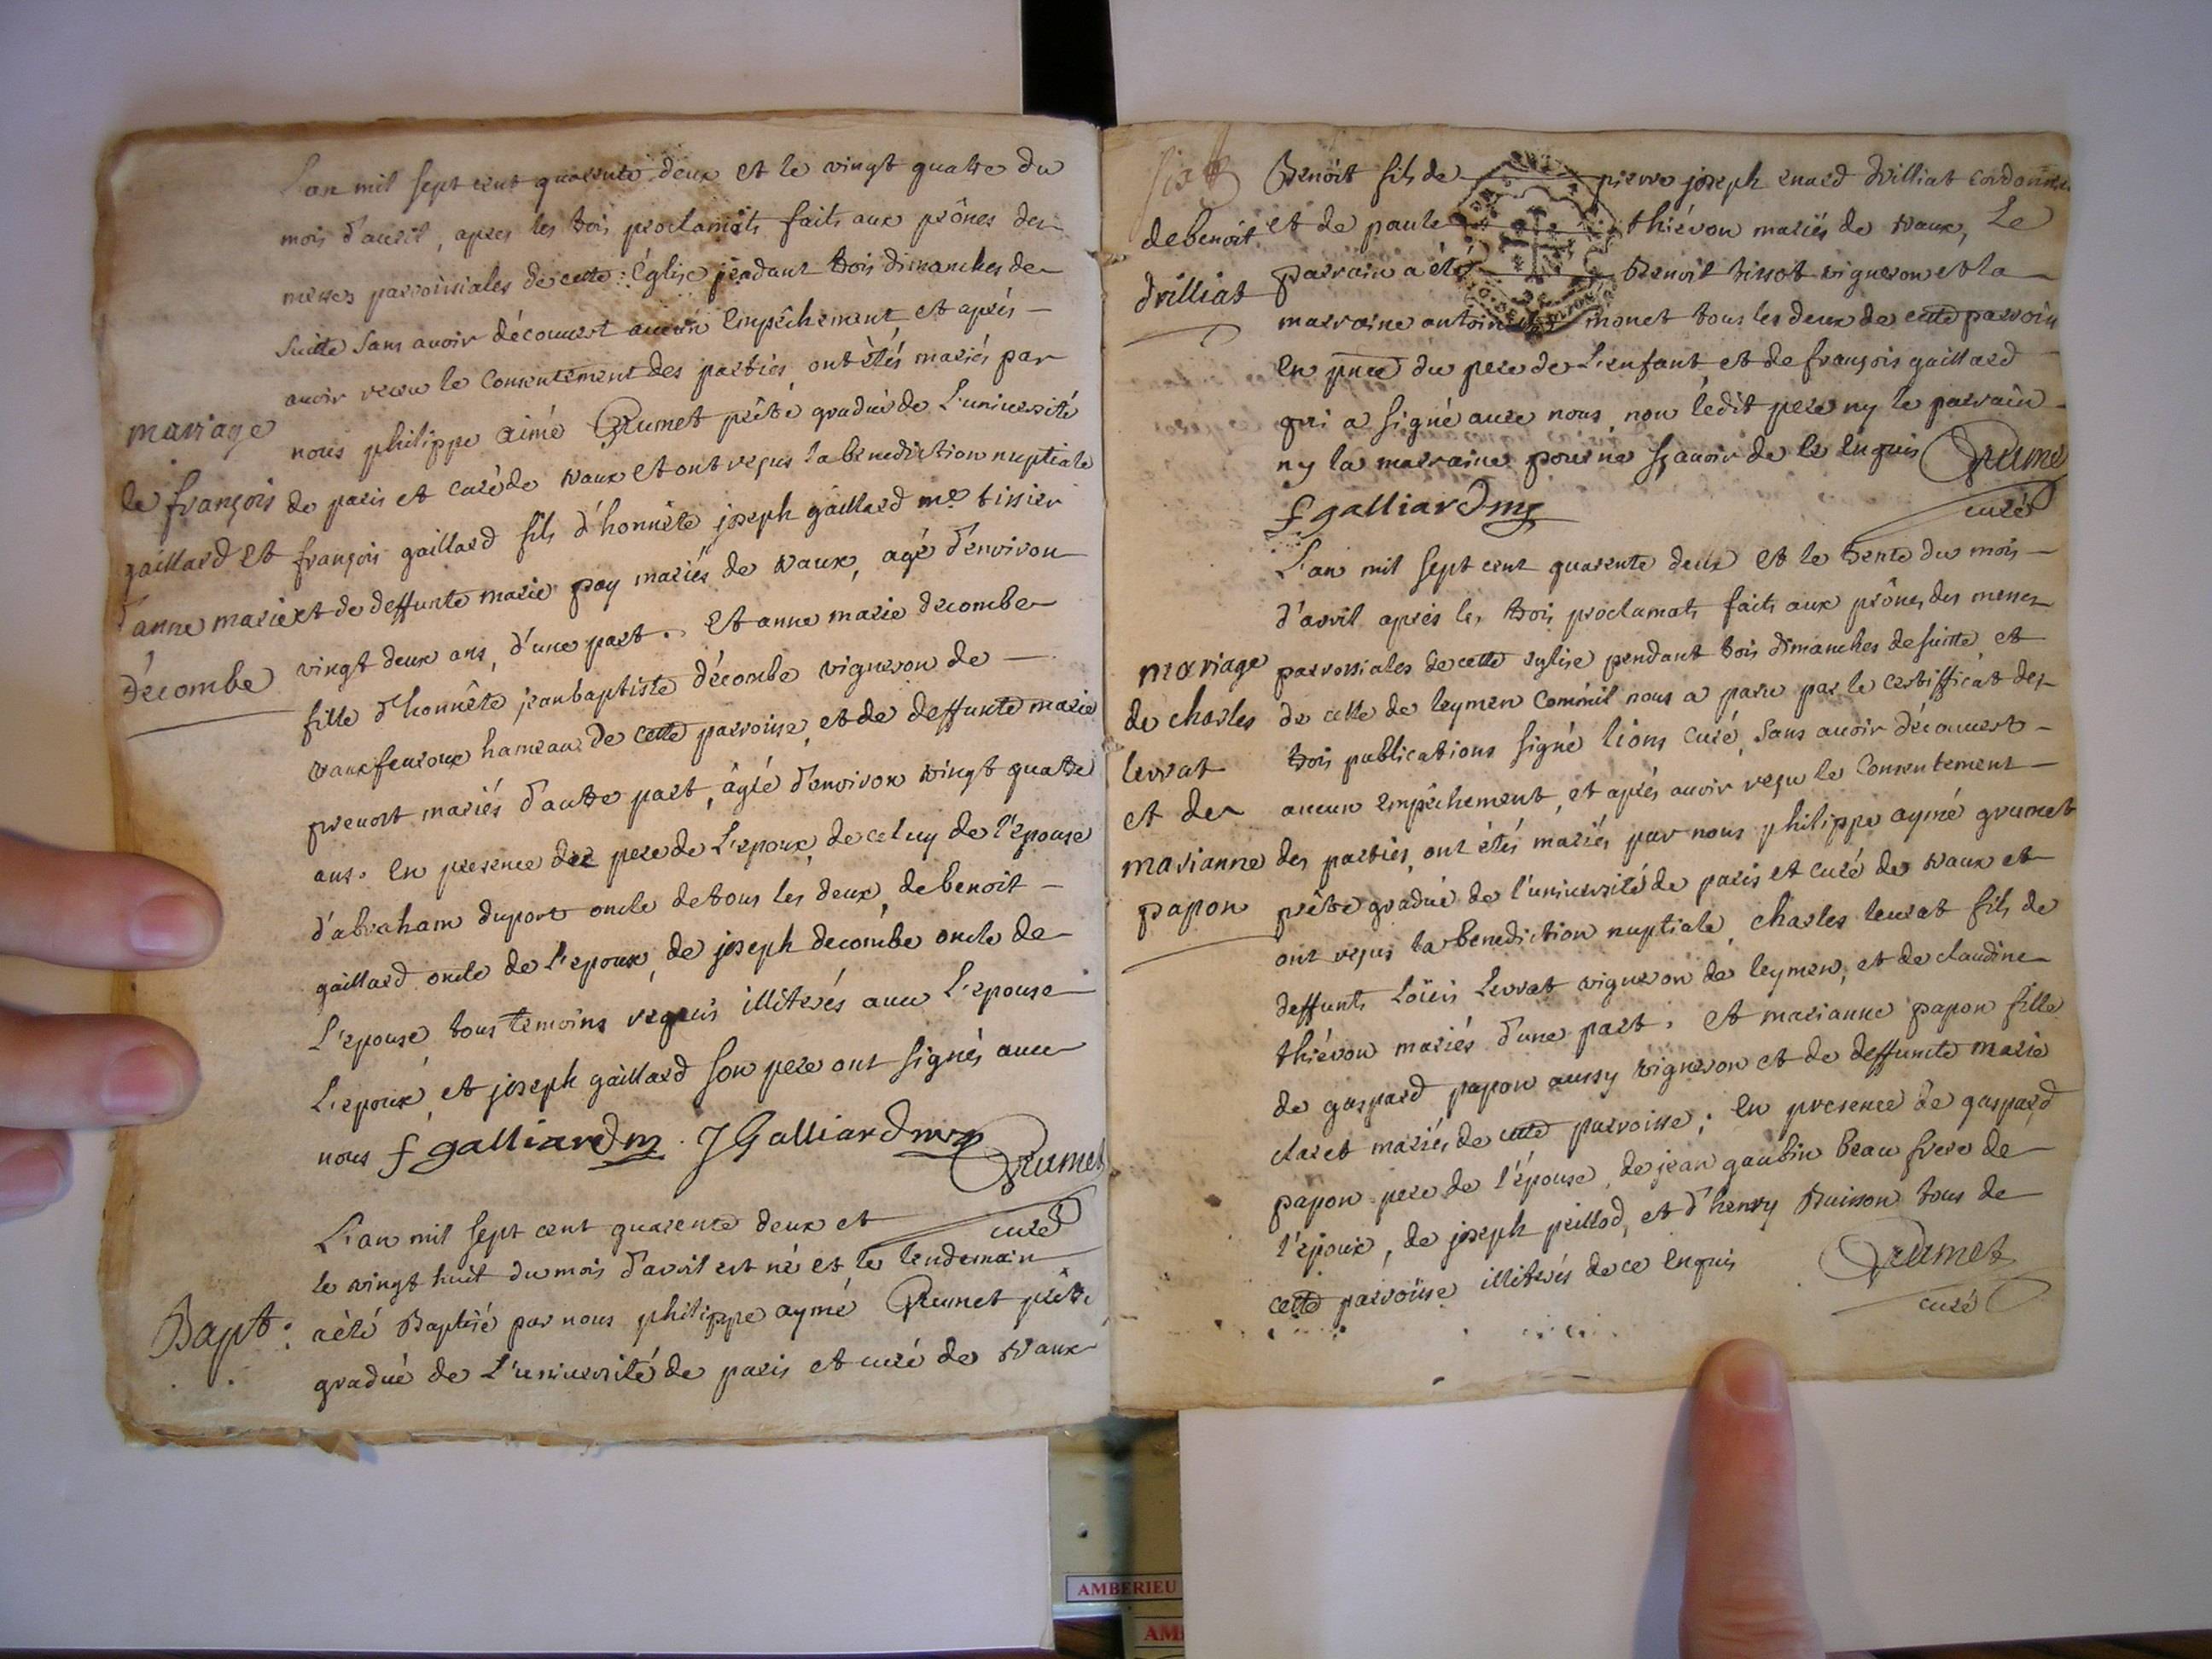 L'an mil sept cent quarente deux et le vingt quatre du
mois d'avril, apres les trois proclamats faits aux prônes des
messes parroissiales de cette Église pendant trois dimanches de
suitte sans avoir découvert aucun Empêchement et aprés
avoir receu le Consentement des parties, ont étés mariés par
nous philippe aimé Grumet prêtre gradué de L'université
de paris et curé de vaux et ont reçus la benediction nuptiale
françois gaillard fils d'honnête joseph gaillard me tissier
et de deffunte marie poy mariés de vaux, agé d'environ
vingt deux ans, d'une part. Et anne marie décombe
fille d'honnête jean baptiste décombe vigneron de
vauxfevroux hameau de cette parroisse, et de deffunte marie
prenost mariés d'autre part, âgée d'environ vingt quatre
ans. En presence des pere de L'epoux, de celuy de l'épouse
d'abraham duport oncle de tous les deux, de benoit
gaillard oncle de l'epoux, de joseph decombe oncle de
L'epouse tous temoins requis illiterés avec L'epouse
L'epoux, et joseph gaillard son pere ont signés avec
nous f galliard J Galliard Grumet
curé
mariage
de françois
gaillard et
d'anne marie
décombe
L'an mil sept cent quarente deux et
le vingt huit du mois d'avril est né et le lendemain
a été Baptisé par nous philippe aymé Grumet prêtre
gradué de L'université de paris et curé de vaux
Bapt:
Benoit fils de pierre joseph drilliat cordonnier
et de paule thiévon mariés de vaux, Le
parrain a été Benoit tissot vigneron et la
marraine antoinette monet tous les deux de cette parroisse
En pnce du pere de L'enfant et de françois gaillard
qui a signé avec nous, non ledit pere ny le parrain
ny la marraine pour ne sçavoir de ce Enquis Grumet
f galliard curé
de benoit
drilliat
L'an mil sept cent quarente deux et le trente du mois
d'avril aprés les trois proclamats faits aux prônes des messes
parrossiales de cette eglise pendant trois dimanches de suitte, et
de celle de leymen Commil nous a paru par le certifficat des
trois publications signé lions curé, sans avoir découvert
aucun empêchement, et aprés avoir reçu le Consentement
des parties, ont étés mariés par nous philippe aymé grumet
prêtre gradué de l'université de paris et curé de vaux et
ont reçus la benediction nuptiale, charles levrat fils de
deffunts Loüis Levrat vigneron de leymen, et de claudine
thiévon mariés d'une part. et marianne papon fille
de gaspard papon aussy vigneron et de deffuncte marie
claret mariés de cette parroisse; En presence de gaspard
papon pere de l'épouse, de jean gaudin beau frere de
l'époux, de joseph peillod, et d'henry Buisson tous de
cette parroisse illiterés de ce Enquis Grumet
curé
mariage
de charles
levrat
et de
marianne
papon
AMBERIEU
AM